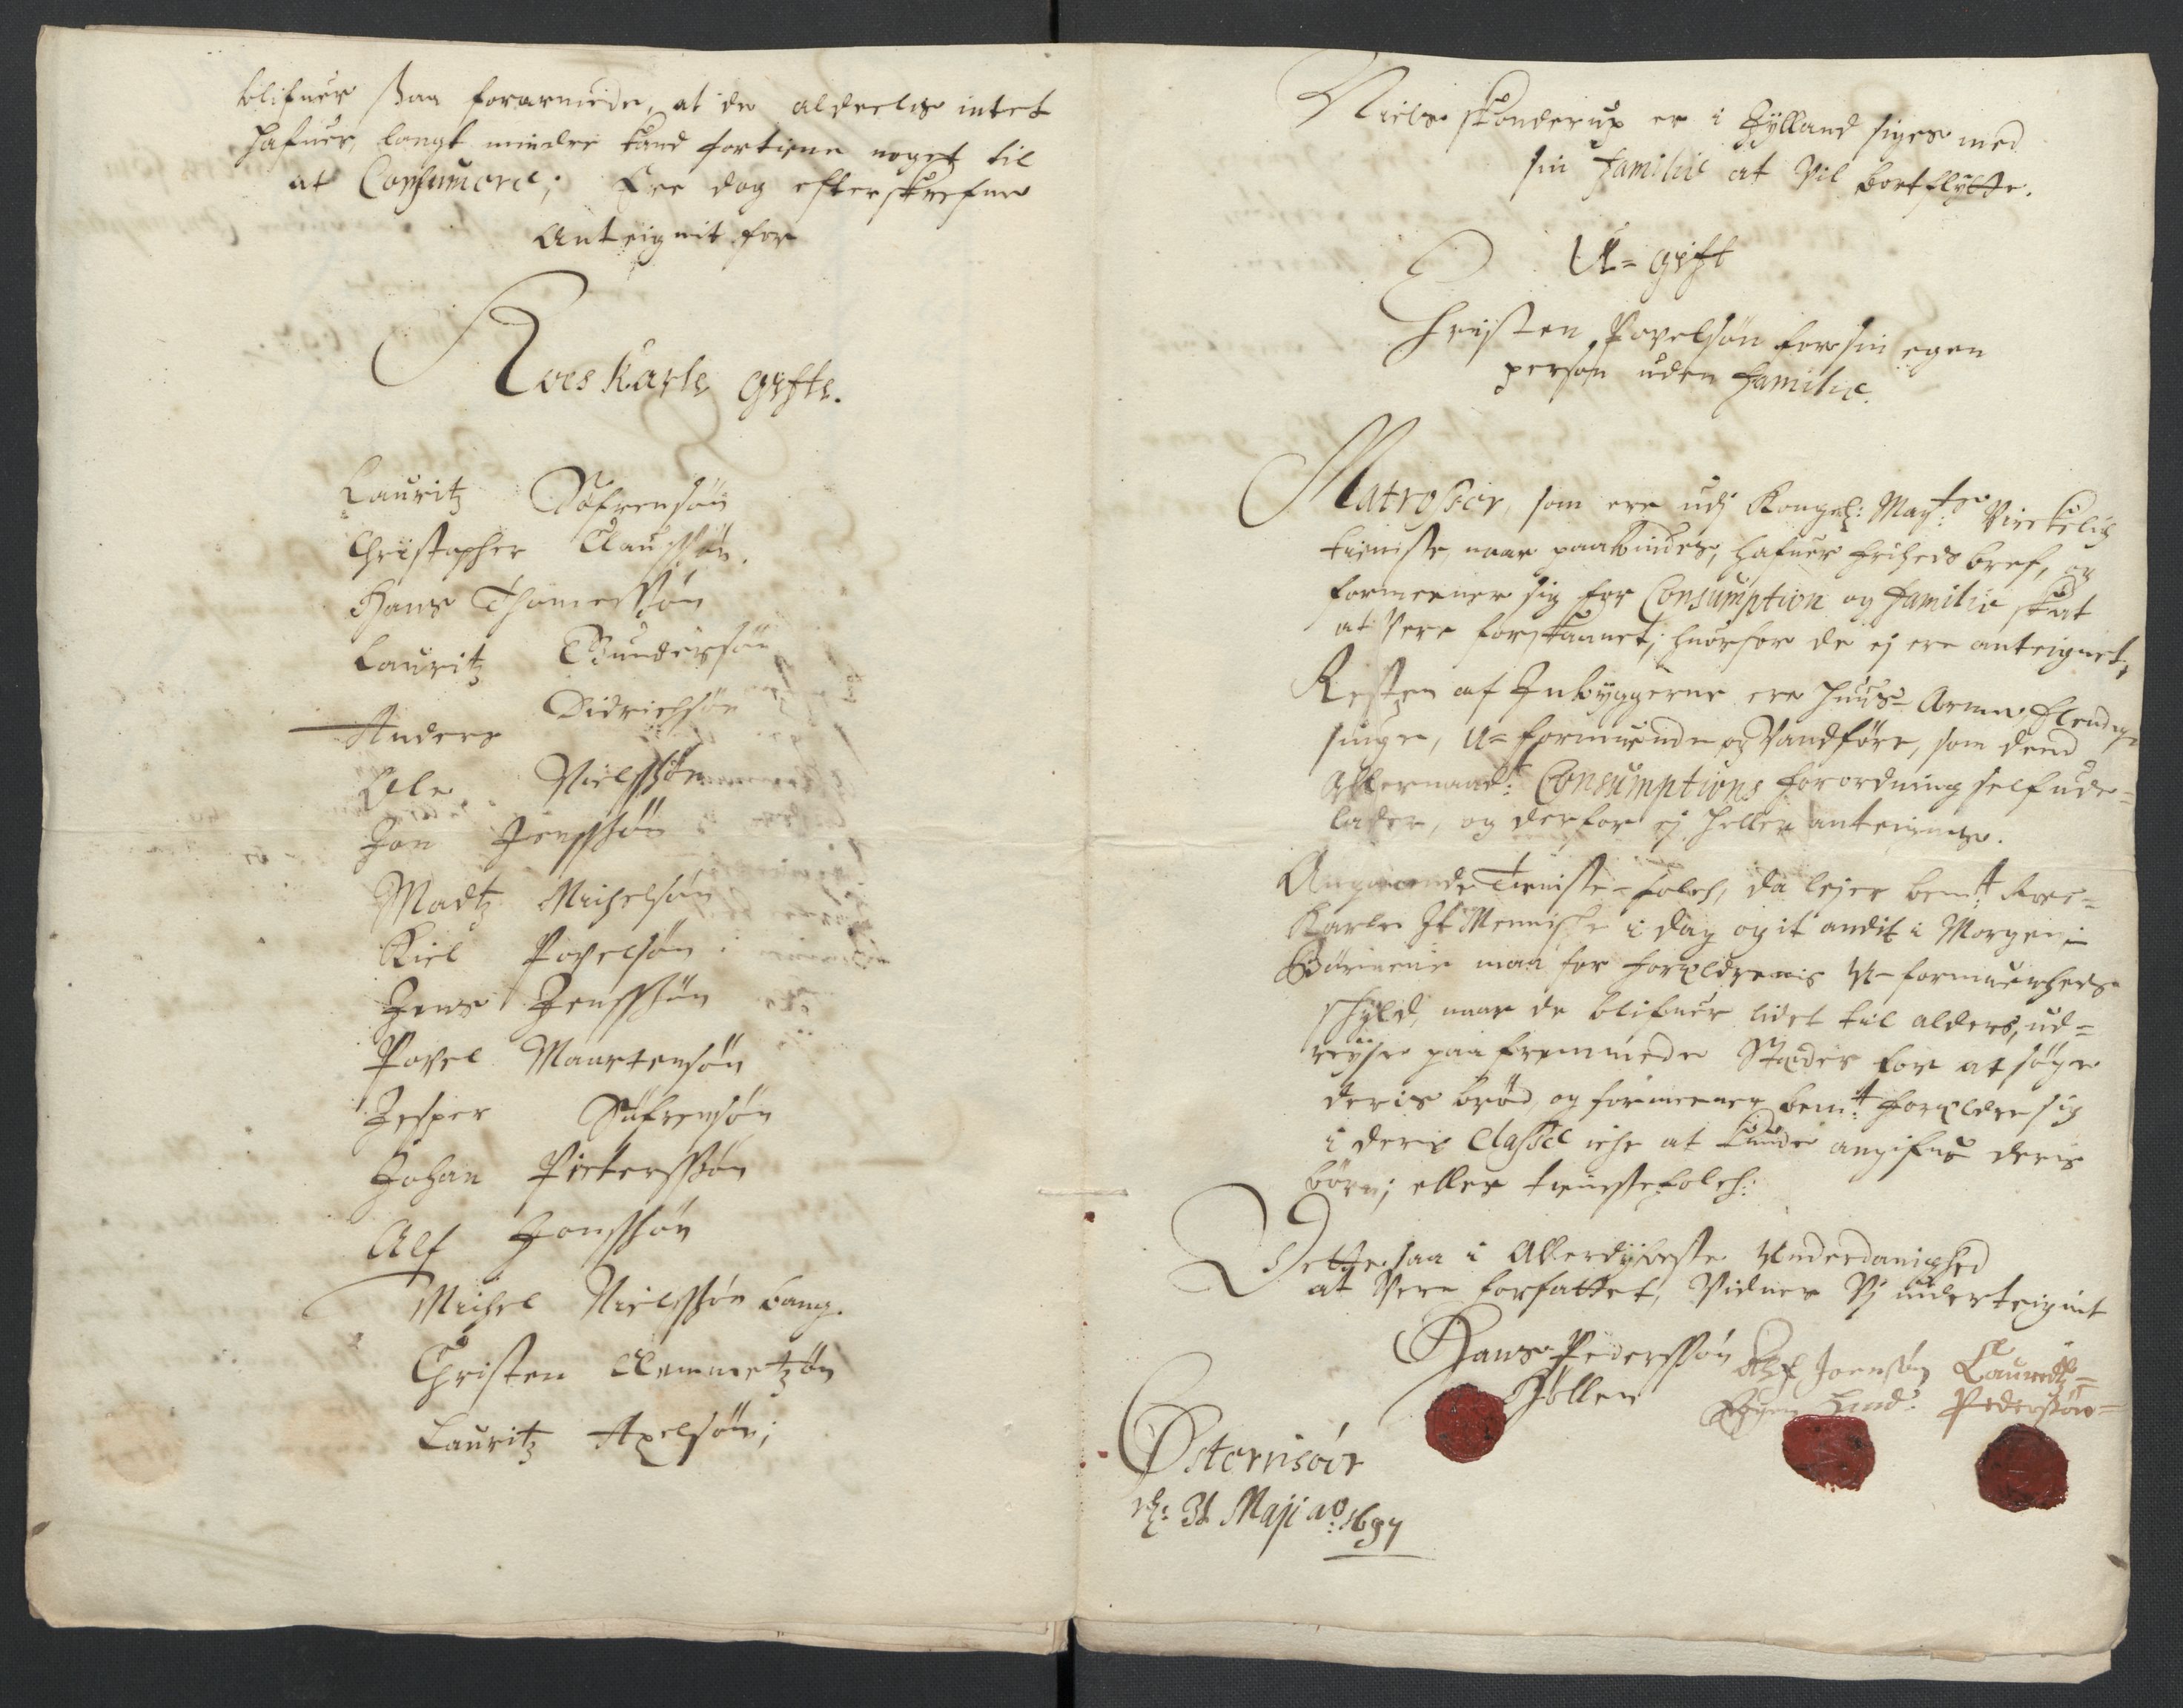 blifuer saa forarmede, at de aldeelis intet
hafuer, langt mindre kand fortiene noget til
at Consumere; Ere dog efterskrefne
Anteignit for
Roes Karle gifte.
Lauritz Søfrensøn
Christopher Claussøn.
Hans Thomessøn
Lauritz Gundersøn
Anders Didrichsøn
Ole Nielssøn
Jon Jenssøn
Madtz Michelsøn
Kiel Povelsøn
Jens Jenssøn
Povel Maartensøn
Jesper Søfrensøn
Johan Pitterssøn
Alf Jonssøn
Michel Nielssøn bang.
Christen Clemmetzøn
Lauritz Axelsøn;
Niels Skonderup er i Jylland siges med
sin Familie at Vil bortflytte.
U=gift
Christen Povelsøn for sin egen
person uden Familie.
Matroser, som ere udj Kongl: May:ts Virkelig
tieniste, naar paabindes, hafuer friheds bref, og
formeener sig for Consumption og Familie skat
at Vere forskaanet; huorfor de ej ere anteignet,
Resten af Indbyggerne ere Huus-Arme, Elendige
siuge, U=formuende og Vandføre, som dend
Allernaad: Consumptions forordning self ude=
lader, og derfor ej heller anteignes.
Angaaende Tieniste-folch, da lejer bem:t Roes=
Karle Jt Menniske i dag og it andit i Morgen
Børnene maa for forældrenis U-formuenheds
schyld, naar de blifuer lidet til alders, ud=
reyse paa fremmede Stæder for at søge
deris brød, og formeener bem:t forældre sig
i deris Classe iche at kunde angifue deris
børn; eller tienstefolch:
Dette saa i Allerdybeste Underdanighed
at Vere forfattet, Vidner Vj underteignit
Hans Pederssøn
Hollen
Alf Joensøn
Egen Hand:
Lauredtz=
Pederssøn=
Østerrisøer
d: 31 Maji ao: 1697